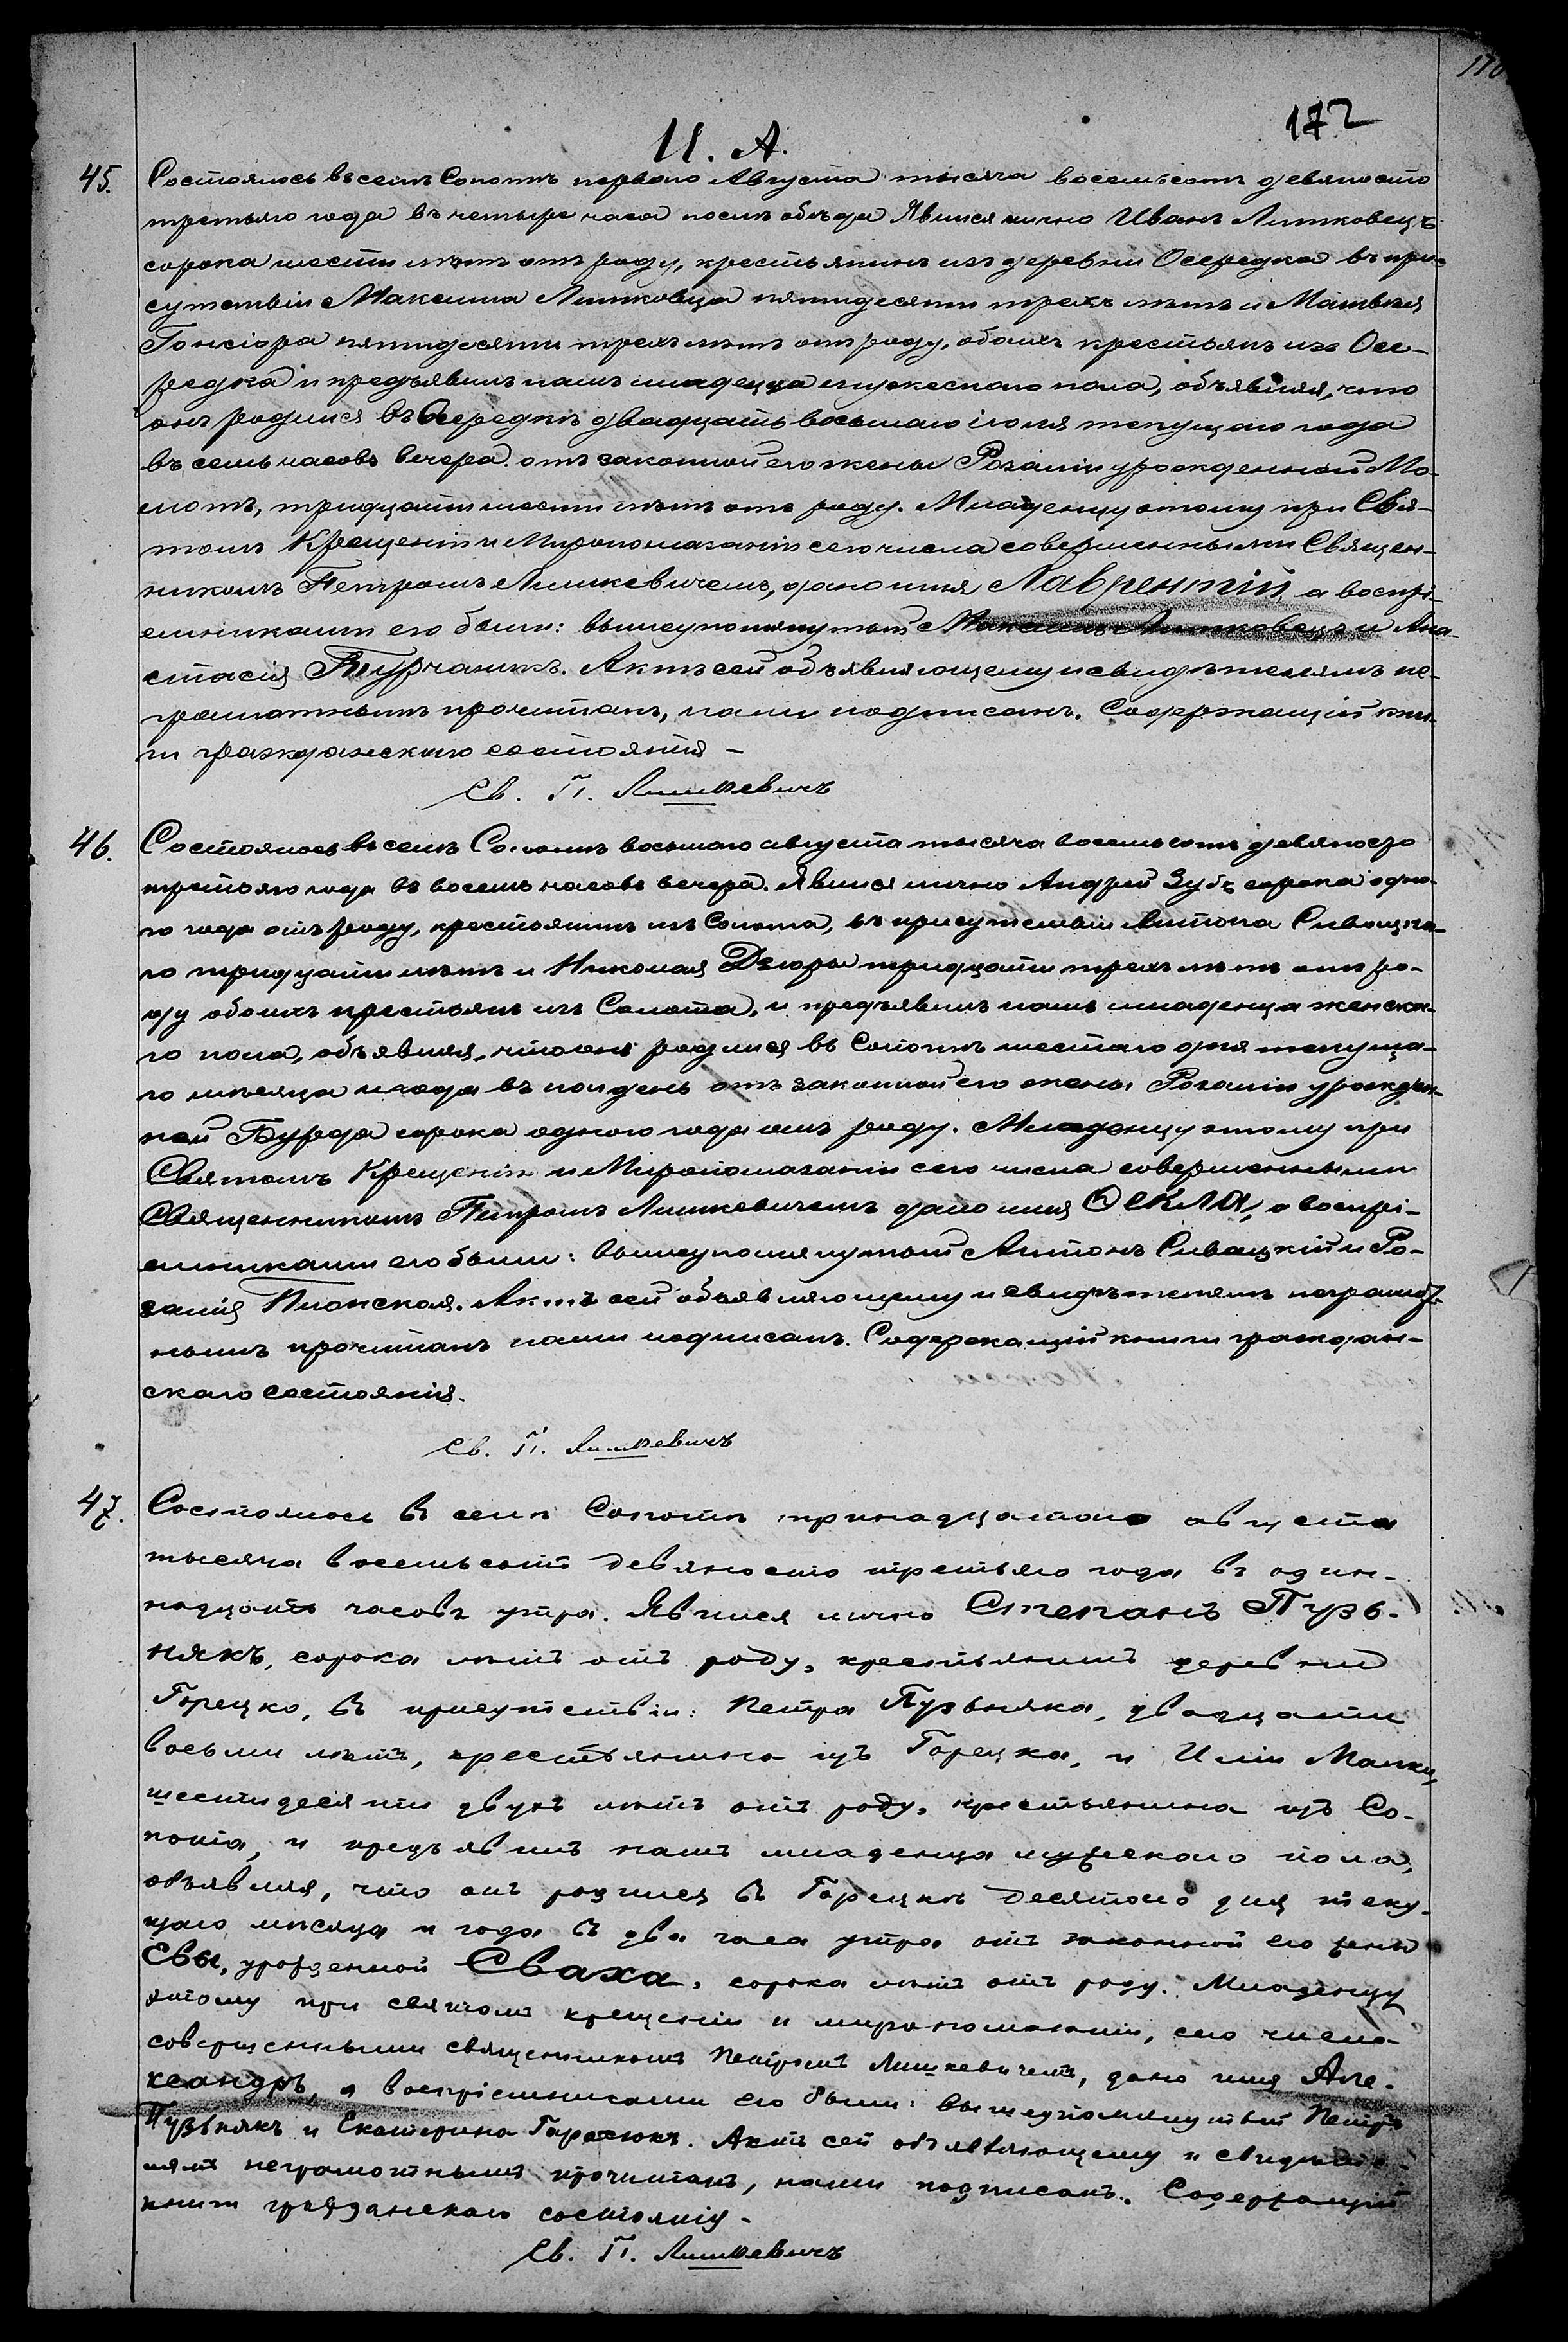 172
II. А.
45. Состоялось въ селѣ Сопотѣ перваго Августа тысяча восемьсотъ девяносто
третьяго года въ четыре часа послѣ обѣда Явился лично Иванъ Литковецъ
сорока шести лѣтъ отъ роду, крестьянинъ изъ деревни Осередка въ при-
сутствіи Максима Литковца пятидесяти трехъ лѣтъ и Матвѣя
Гонсіора пятидесяти трехъ лѣтъ отъ роду, обоихъ крестьянъ изъ Осе-
редка и предъявилъ намъ младенца мужескаго пола, объявляя, что
онъ родился въ Осередкѣ двадцать восьмаго іюля текущаго года
въ семь часовъ вечера отъ законной его жены Розаліи урожденной Мо-
лотъ, тридцати шести лѣтъ отъ роду. Младенцу этому при Свя-
томъ Крещеніи и Миропомазаніи сего числа совершенными Священ-
никомъ Петромъ Лишкевичемъ, дано имя Лаврентій, а воспрі-
емниками его были: вышеупомянутый Максимъ Литковецъ и Ана-
стасія Турчаникъ. Актъ сей объявляющему и свидѣтелямъ не-
грамотнымъ прочитанъ, нами подписанъ. Содержащій кни-
ги гражданскаго состоянія –
Св. П. Лишкевичъ
46. Состоялось въ селѣ Сопотѣ восьмаго августа тысяча восемьсотъ девяносто
третьяго года въ восемь часовъ вечера. Явился лично Андрей Зубъ сорока одно-
го года отъ роду, крестьянинъ изъ Сопота, въ присутствіи Антона Сивацка-
го тридцати лѣтъ и Николая Дзюры тридцати трехъ лѣтъ отъ ро-
ду обоихъ крестьянъ изъ Сопота, и предъявилъ намъ младенца женска-
го пола, объявляя, что онъ родился въ Сопотѣ шестаго дня текуща-
го мѣсяца и года въ полдень отъ законной его жены Розаліи урожден-
ной Бурда сорока одного года отъ роду. Младенцу этому при
Святомъ Крещеніи и Миропомазаніи сего числа совершенными
Священникомъ Петромъ Лишкевичемъ дано имя Ѳекла, а воспрі-
емниками его были: вышеупомянутый Антонъ Сивацкій и Ро-
залія Плонская. Актъ сей объявляющему и свидѣтелямъ неграмот-
нымъ прочитанъ нами подписанъ. Содержащій книги граждан-
скаго состоянія.
Св. П. Лишкевичъ
47. Состоялось въ селѣ Сопотѣ тринадцатаго августа
тысяча восемьсотъ девяносто третьяго года въ один-
надцать часовъ утра. Явился лично Степанъ Пузь-
някъ, сорока лѣтъ отъ роду, крестьянинъ деревни
Горецко, въ присутствіи: Петра Пузьняка, двадцати
восьми лѣтъ, крестьянина изъ Горецка, и Иліи Малки,
шестидесяти двухъ лѣтъ отъ роду, крестьянина изъ Со-
пота, и предъявилъ намъ младенца мужескаго пола,
объявляя, что онъ родился въ Горецкѣ десятаго дня теку-
щаго мѣсяца и года въ два часа утра отъ законной его жены
Евы, урожденной Сваха, сорока лѣтъ отъ роду. Младенцу
этому при святомъ крещеніи и миропомазаніи, сего числа
совершенными священникомъ Петромъ Лишкевичемъ, дано имя Але-
ксандръ, а воспріемниками его были: вышеупомянутый Петръ
Пузьнякъ и Екатерина Гарасюкъ. Актъ сей объявляющему и свидѣте-
лямъ неграмотнымъ прочитанъ, нами подписанъ. Содержащій
книги гражданскаго состоянія –
Св. П. Лишкевичъ